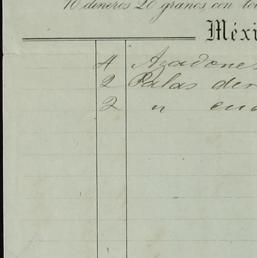 10 dineros 20 granos con
Méxi
4 Azadones
2 Palas der
2 " cua